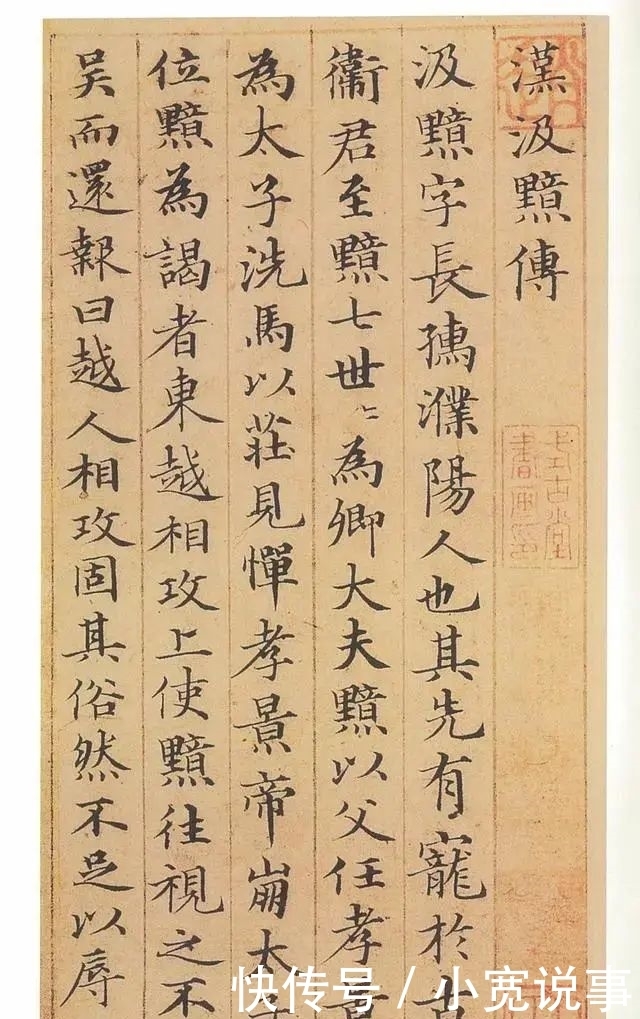 漢汲黯傳
汲黯字長孺濮陽人也其先有寵於古
衞君至黯七世〻為卿大夫黯以父任孝景
為太子洗馬以莊見憚孝景帝崩太子
位黯為謁者東越相攻上使黯往視之不
吳而還報曰越人相攻固其俗然不足以辱
式古堂
書畫印
快传号 / 小宽说事